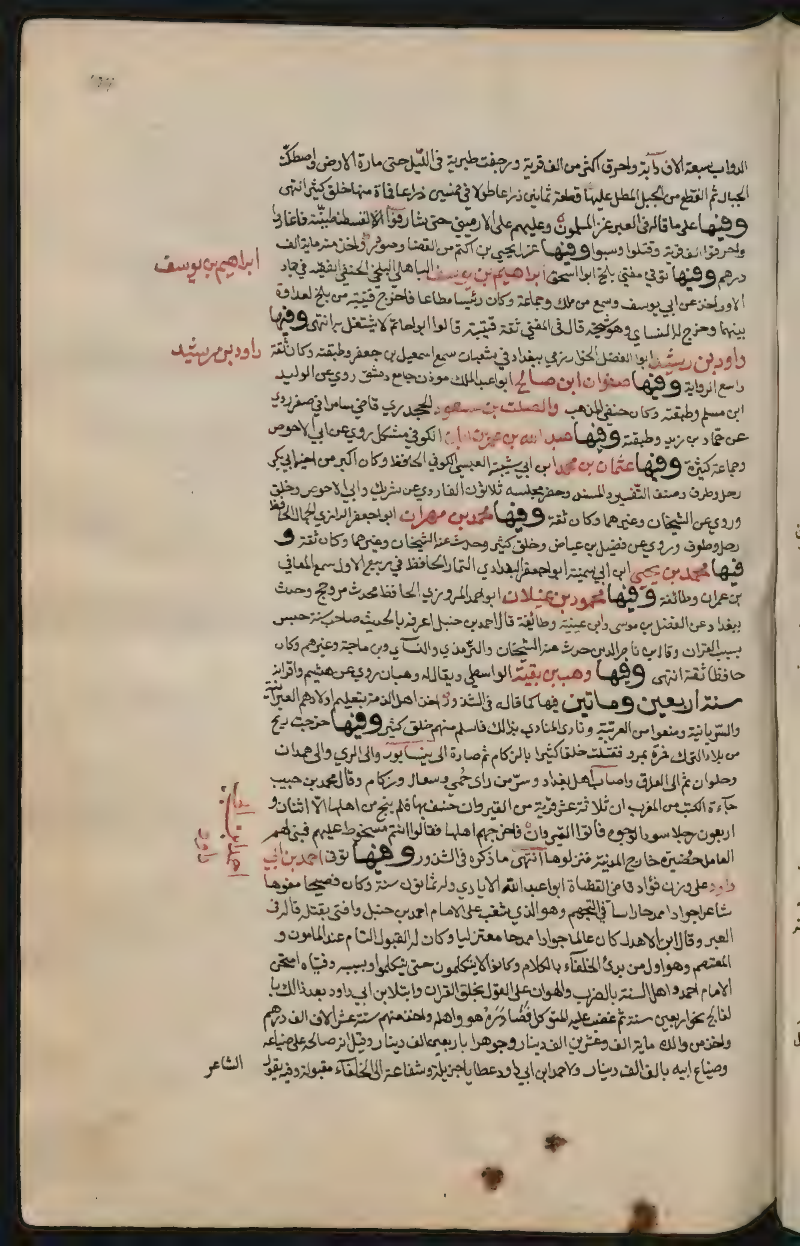 الدواب سبعة الاف دابة واحرق اكثر من الف قرية ورجفت طبرية في الليل حتى مارة الارض واصطكت
الجبال ثم انقطع من الجبل المطل عليها قطعة ثمانين ذراعا طولا في خمسين ذراعا فاة منها خلق كثير انتهى
وفيها على ما قاله في العبر غز المسلمون وعليهم على الارميني حتى شارفوا القسطنطينية فاغاروا
واحرقوا الف قرية وقتلوا وسبوا وفيها عزل يحيى بن اكثم من القضا وصودر واخذ منه ماية الف
درهم وفيها توفي مفتي بلخ ابو اسحق ابراهيم بن يوسف الباهلي البلخي الحنفي الفقيه في جماد
الاول اخذ عن ابي يوسف وسمع من ملك وجماعة وكان رئيسا مطاعا فاخرج قتيبة من بلخ لعداوة
بينهما وخرج له النساي وهو شيخه قال في المغني ثقة قتيبة قالوا ابو حاتم لا يشتغل به انتهى وفيها
داود بن رشيد ابو الفضل الخوارزمي ببغداد في شعبان سمع اسمعيل بن جعفر وطبقته وكان ثقة
واسع الرواية وفيها صفوان ابن صالح ابو عبد الملك موذن جامع دمشق روى عن الوليد
ابن مسلم وطبقته وكان حنفي المذهب والصلت بن مسعود الجحدري قاضي سامرا في صفر روى
عن حماد بن زيد وطبقته وفيها عبد الله بن عمر بن ابان الكوفي مشكل روى عن ابي الاحوص
وجماعة كثيرة وفيها عثمان بن محمد ابن ابي شيبة العبسي الكوفي الحافظ وكان اكبر من اخيه ابي بكر
رحل وطوف وصنف التفسير والمسند وحضر مجلسه ثلاثون الفا روى عن شريك وابي الاحوص وخلق
وروى عن الشيخان وغيرهما وكان ثقة وفيها محمد بن مهران ابو جعفر الرازي الجمال الحافظ
رحل وطوف وروى عن فضيل بن عياض وخلق كثير وحدث عنه الشيخان وغيرهما وكان ثقة و
فيها محمد بن يحيى ابن ابي سمينة ابو جعفر البغدادي التمار الحافظ في ربيع الاول سمع المعافي
بن عمران وطائفة وفيها محمود بن غيلان ابو احمد المروزي الحافظ محدث مرو حج وحدث
ببغداد عن الفضل بن موسى وابن عيينة وطائفة قال احمد بن حنبل اعرفه بالحديث صاحب سنة حبس
بسبب القران وقال ابن ناصر الدين حدث عنه الشيخان والترمذي والنسآي وبن ماجة وغيرهم وكان
حافظا ثقة انتهى وفيها وهب بن بقية الواسطي ويقال له وهبان روى عن هشيم واقرانه
سنة اربعين وماتين فيها كما قاله في الشذور اخذ اهل الذمة بتعليم اولادهم العبرانية
والسريانية ومنعوا من العربية ونادى المنادي بذلك فاسلم منهم خلق كثير وفيها خرجت ريح
من بلاد الترك فرة بمرو فقتلت خلقا كثيرا بالزكام ثم صارة الى نيسابور والى الري والى همدان
وحلوان ثم الى العراق واصاب اهل بغداد وسر من راى حمى وسعال وزكام وقال محمد بن حبيب
جآءة الكتب من المغرب ان ثلاثة عشر قرية من القيروان خسف بها فلم ينج من اهلها الا اثنان و
اربعون رجلا سود الوجوه فاتوا القيروان فاخرجهم اهلها فقالوا انتم مسخوط عليهم فبنى لهم
العامل حضيرة خارج المدينة فنزلوها انتهى ما ذكره في الشذور وفيها توفي احمد بن ابي
داود على وزن فؤاد قاضي القضاة ابو عبد الله الايادي وله ثمانون سنة وكان فصيحا مفوها
شاعرا جوادا ممدحا راسا في التجهم وهو الذي شغب على الامام احمد بن حنبل وافتى بقتله قال في
العبر وقال ابن الاهدل كان عالما جوادا ممدحا معتزليا وكان له القبول التام عند المامون و
المعتصم وهو اول من بدئ الخلفاء بالكلام وكانوا لا يتكلمون حتى يتكلموا وبسببه وفتياه امتحن
الامام احمد واهل السنة بالضرب والهوان على القول بخلق القران وابتلا ابن ابي داود بعد ذالك با
لفالج نحو اربعين سنة ثم غضب عليه المتوكل فصادره هو واهله واخذ منهم ستة عشر الاف الف درهم
واخذ من والده ماية الف وعشرين الف دينار وجوهرا باربعين الف دينار وقيل انه صالحه على ضياعه
وضياع ابيه بالف الف دينار ولاحمد ابن ابي داود عطايا جزيلة وشفاعة الى الخلفآء مقبولة وفيه يقول
الشاعر
ابراهيم بن يوسف
داود بن مرشيد
احمد ابن ابي
داود